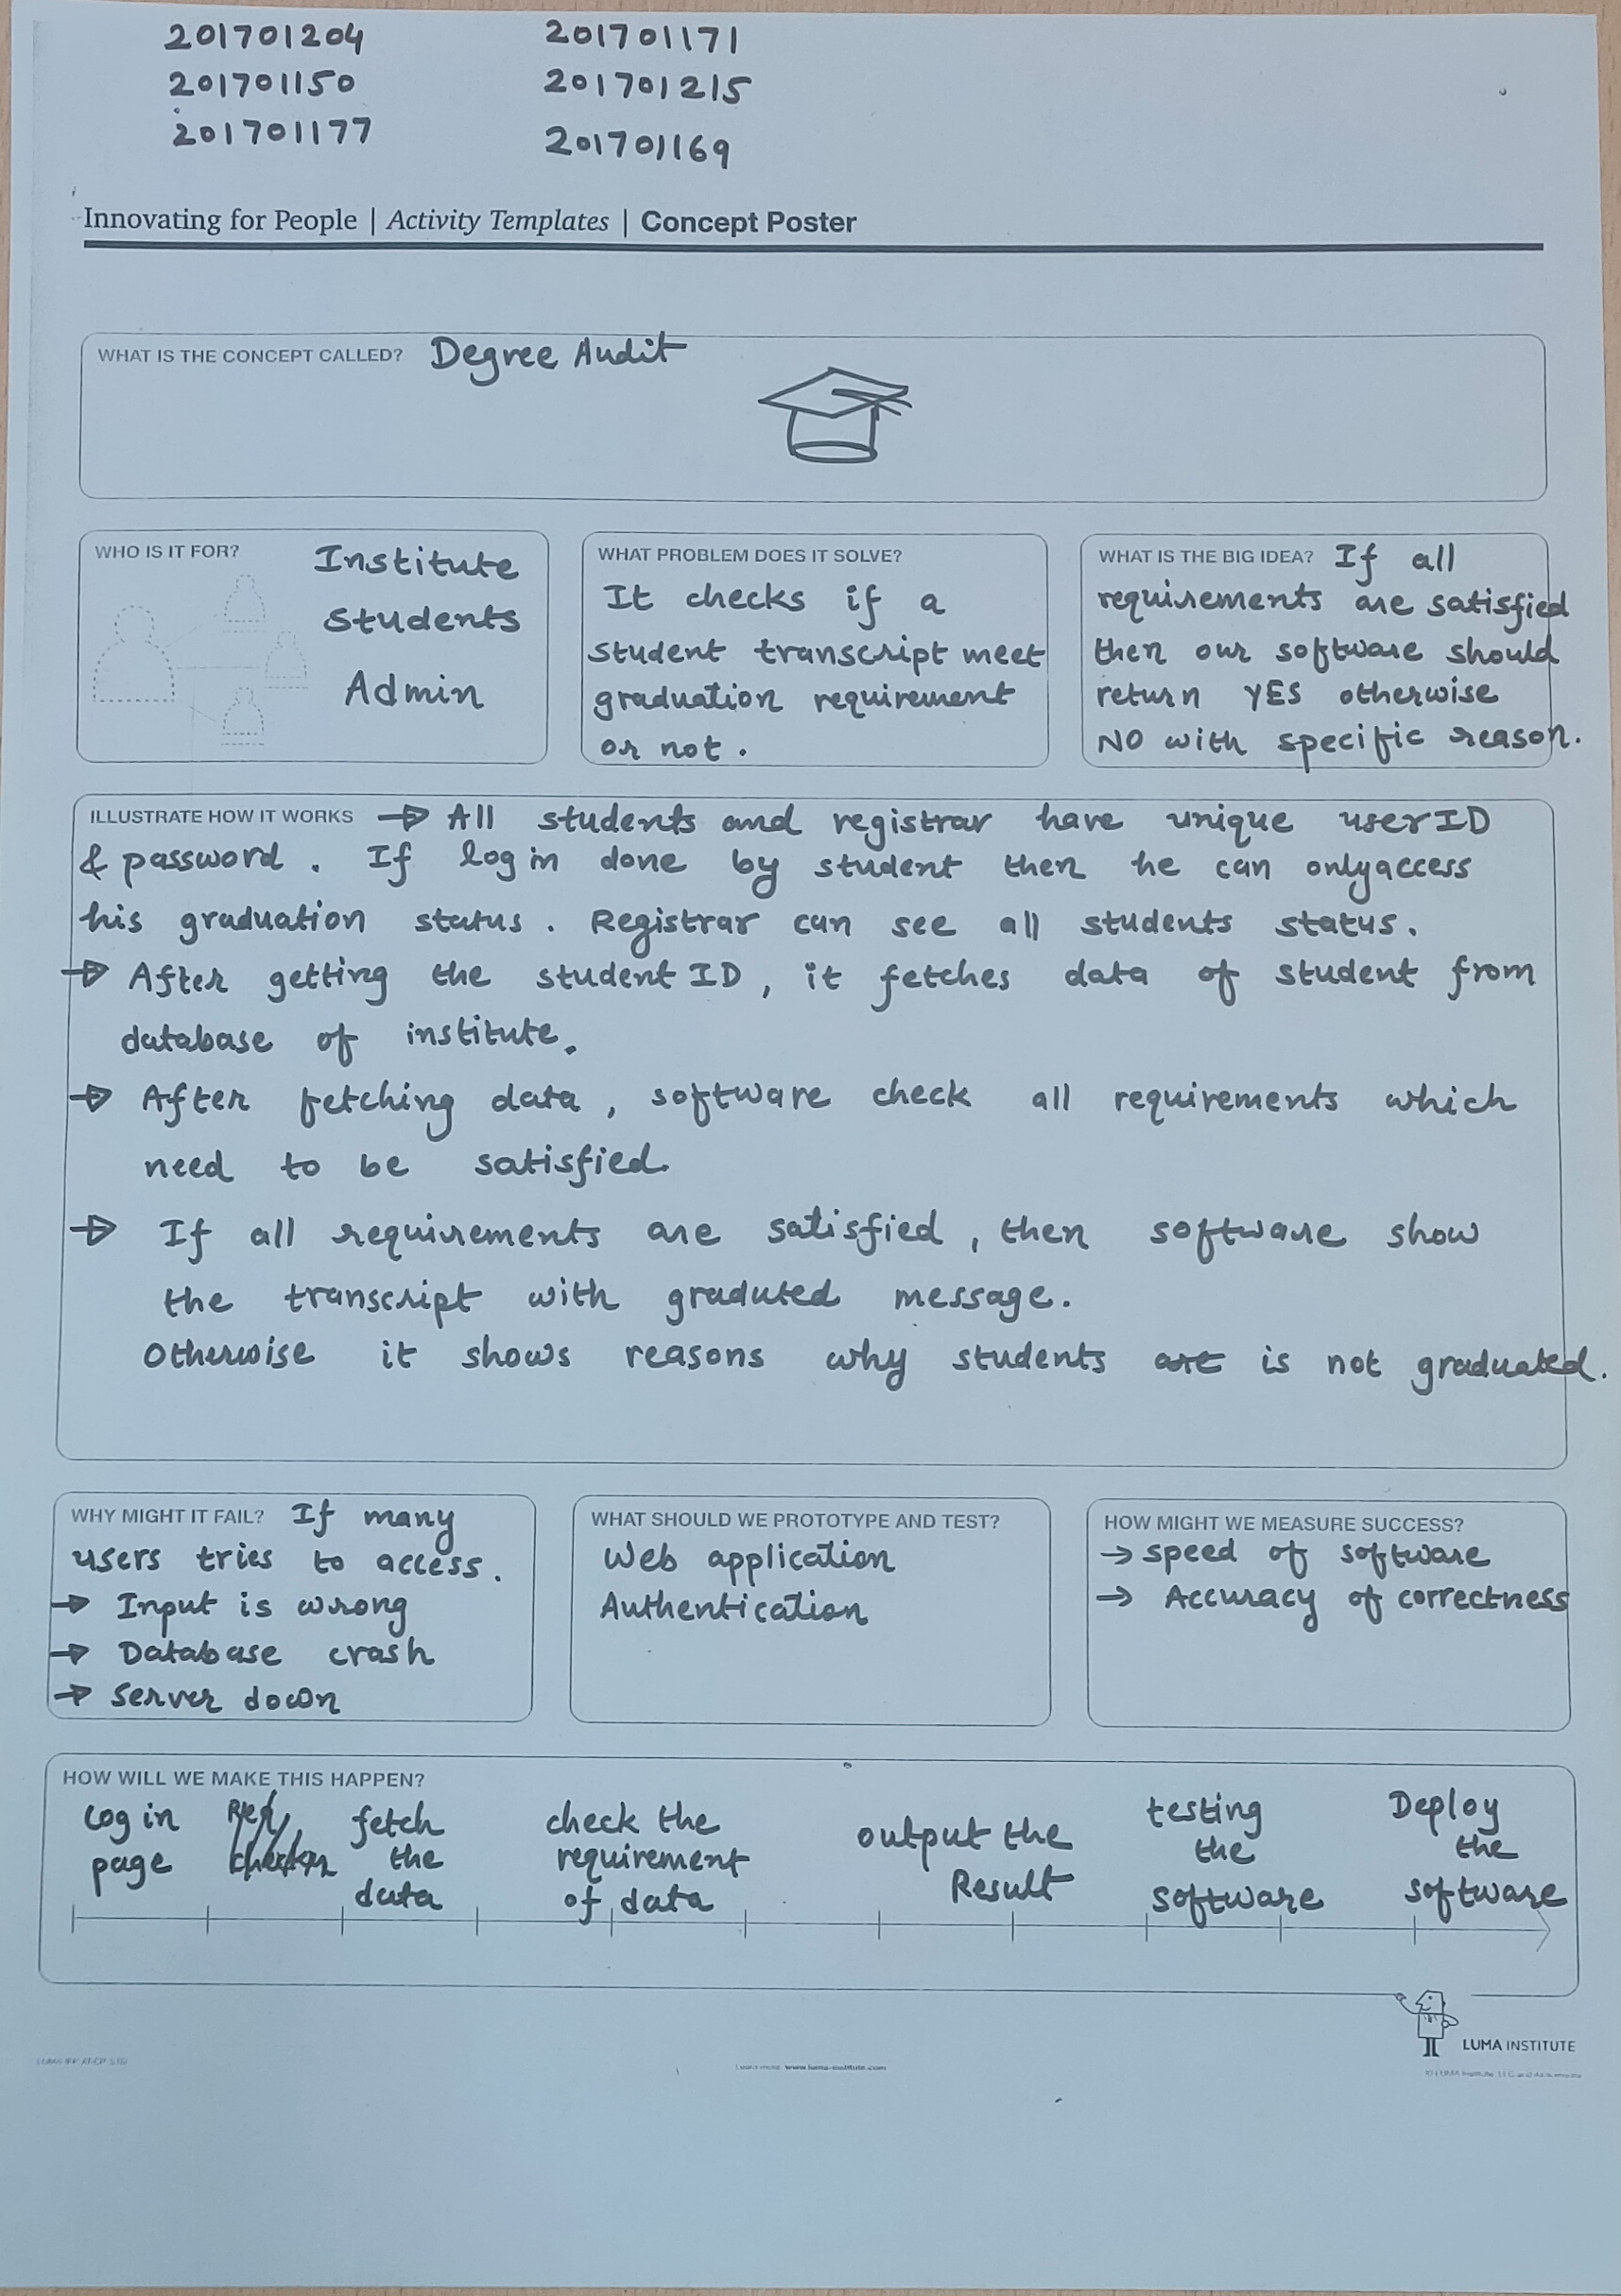 201701204 201701171
201701150 201701215
201701177 201701169
Innovating for People | Activity Templates | Concept Poster
WHAT IS THE CONCEPT CALLED? Degree Audit
WHO IS IT FOR? Institute
Students
Admin
WHAT PROBLEM DOES IT SOLVE?
It checks if a
student transcript meet
graduation requirement
or not.
WHAT IS THE BIG IDEA? If all
requirements are satisfied
then our software should
return YES otherwise
NO with specific reason.
ILLUSTRATE HOW IT WORKS → All students and registrar have unique userID
& password. If log in done by student then he can only access
his graduation status. Registrar can see all students status.
→ After getting the student ID, it fetches data of student from
database of institute.
→ After fetching data, software check all requirements which
need to be satisfied.
→ If all requirements are satisfied, then software show
the transcript with graduted message.
Otherwise it shows reasons why students are is not graduated.
WHY MIGHT IT FAIL? If many
users tries to access.
→ Input is wrong
→ Database crash
→ Server down
WHAT SHOULD WE PROTOTYPE AND TEST?
Web application
Authentication
HOW MIGHT WE MEASURE SUCCESS?
→ speed of software
→ Accuracy of correctness
HOW WILL WE MAKE THIS HAPPEN?
Log in
page
fetch
the
data
check the
requirement
of data
output the
Result
testing
the
software
Deploy
the
software
LUMA INSTITUTE
Learn more www.luma-institute.com